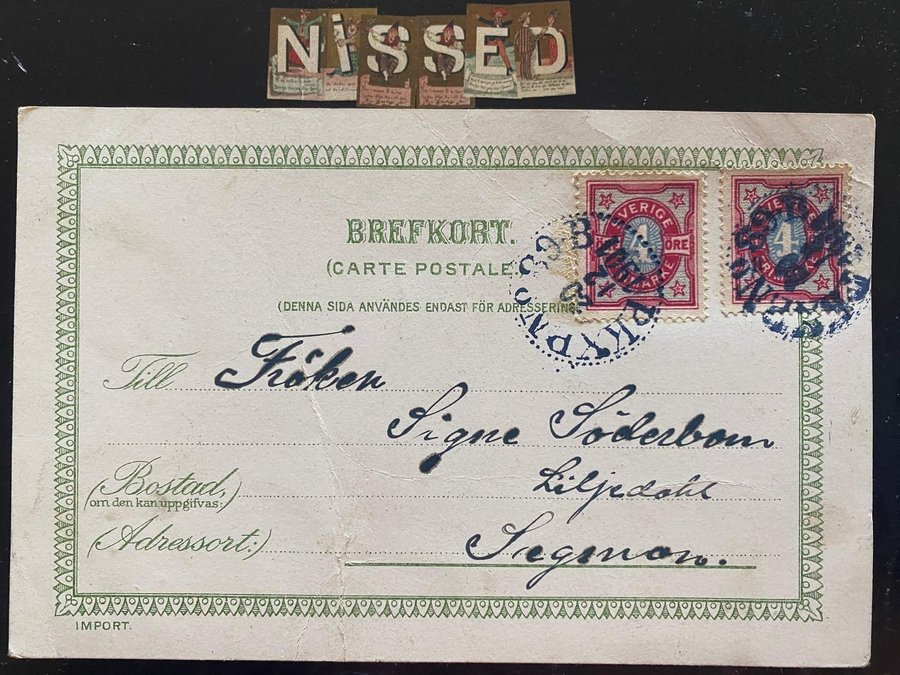 NISSED
BREFKORT.
(CARTE POSTALE
(DENNA SIDA ANVÄNDES ENDAST FÖR ADRESSERING
SVERIGE
4
ÖRE
FRIMÄRKE
4
Till Fröken
Signe Söderbom
Liljedahl
(Bostad,)
(om den kan uppgifvas:)
(Adressort:)
Segmon.
IMPORT.